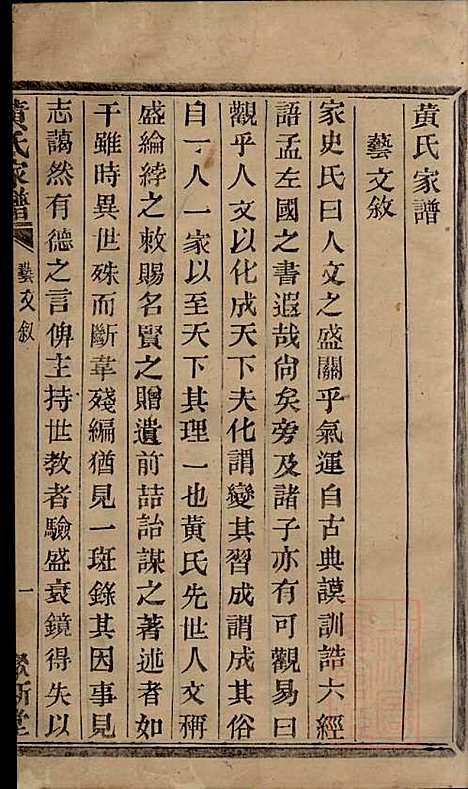 黃氏家譜
藝文敘
家史氏曰人文之盛關乎氣運自古典謨訓誥六經
語孟左國之書遐哉尚矣旁及諸子亦有可觀易曰
觀乎人文以化成天下夫化謂變其習成謂成其俗
自一人一家以至天下其理一也黃氏先世人文稱
盛綸綍之敕賜名賢之贈遺前喆詒謀之著述者如
干雖時異世殊而斷韋殘編猶見一斑錄其因事見
志藹然有德之言俾主持世教者驗盛衰鏡得失以
黃氏家譜
藝文敘
一
堂